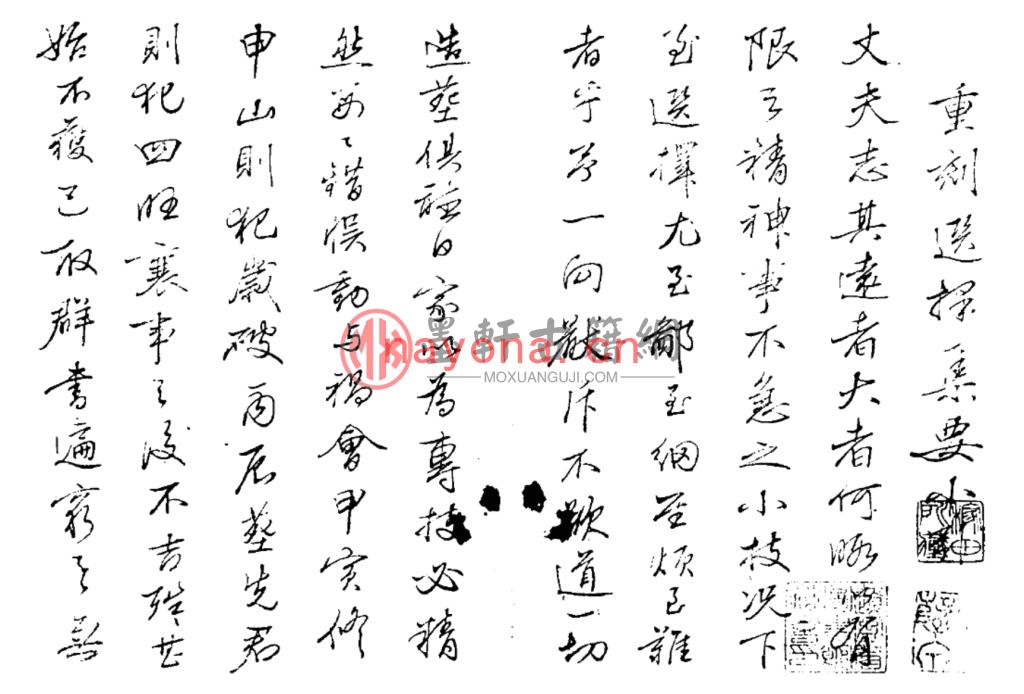 重刻選擇集要小
丈夫志其遠者大者何暇
限之精神事不急之小技況下
至選擇尤至鄙至細至煩且難
者乎予一向厭斥不欲道一切
造葬俱聽日家以為專技必精
然每〻錯誤動与禍會甲寅修
申山則犯歲破丙辰葬先君
則犯四旺襄事之後不吉殊甚
始不獲已取群書遍窮之無
墨軒古籍網
nayona.cn
MOXUANGUJI.COM